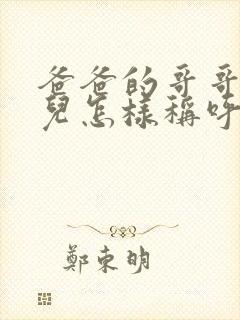 爸爸的哥哥
兒怎樣稱呼
鄭東明